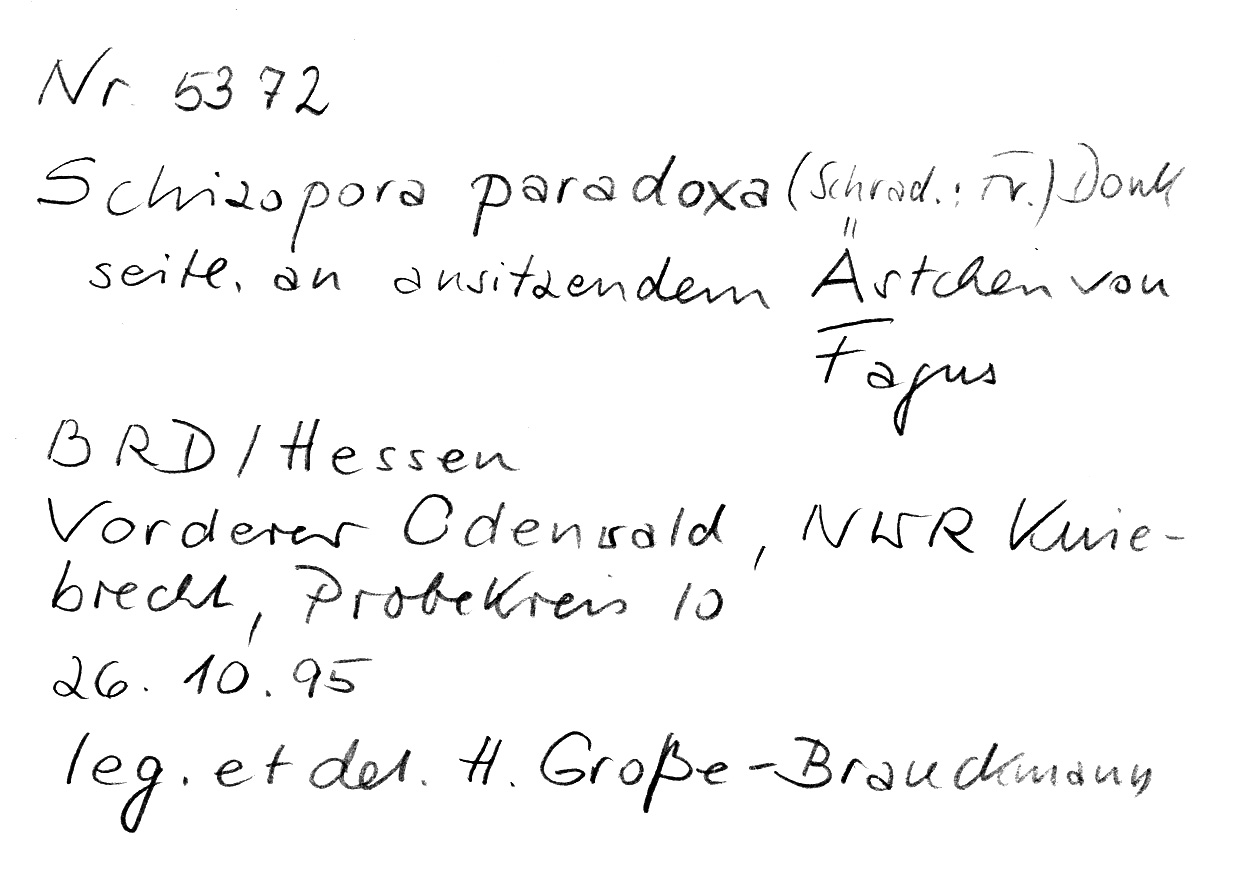 Nr 5372
Schizopora paradoxa (Schrad.: Fr.) Donk
seitl. an ansitzendem Ästchen von
Fagus
BRD/Hessen
Vorderer Odenwald, NWR Knie-
brecht, Probekreis 10
26. 10. 95
leg. et det. H. Große-Brauckmann